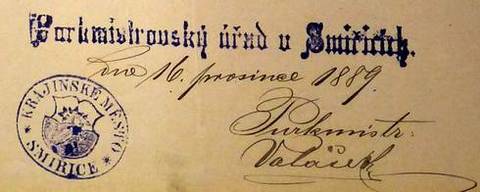 Purkmistrovský úřad v Smiřicích.
dne 16. prosince 1889.
Purkmistr:
Valášek
KRAJINSKÉ MĚSTO
* SMIŘICE *